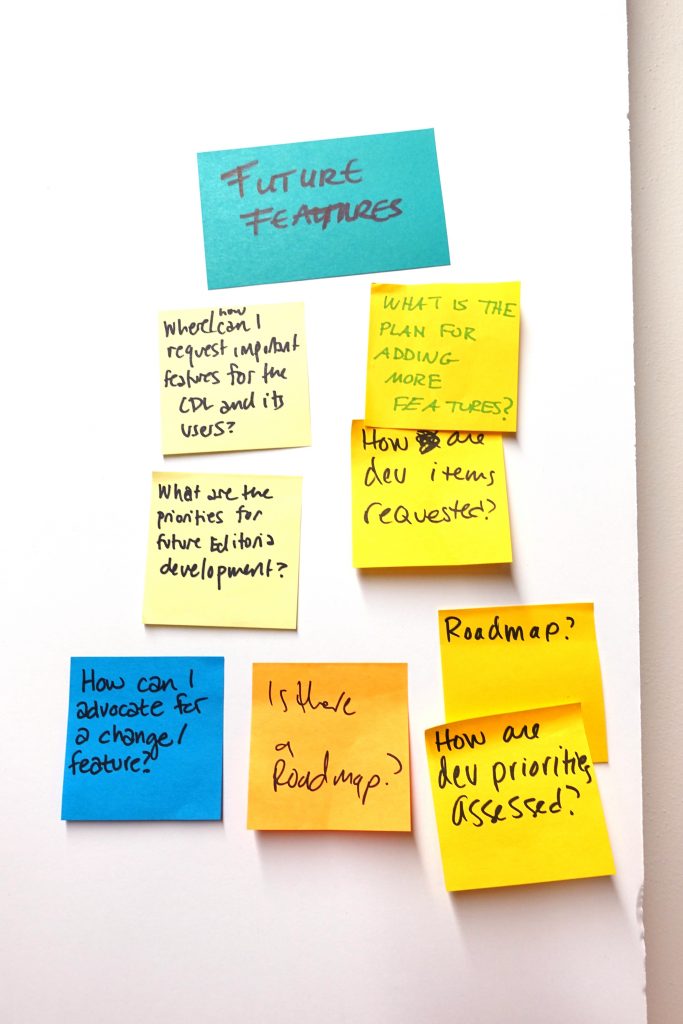 FUTURE
FEATURES
how
Where/can I
request important
features for the
CDL and its
users?
WHAT IS THE
PLAN FOR
ADDING
MORE
FEATURES?
How are
dev items
requested?
What are the
priorities for
future Editoria
development?
How can I
advocate for
a change/
feature?
Is there
a
Roadmap?
Roadmap?
How are
dev priorities
assessed?